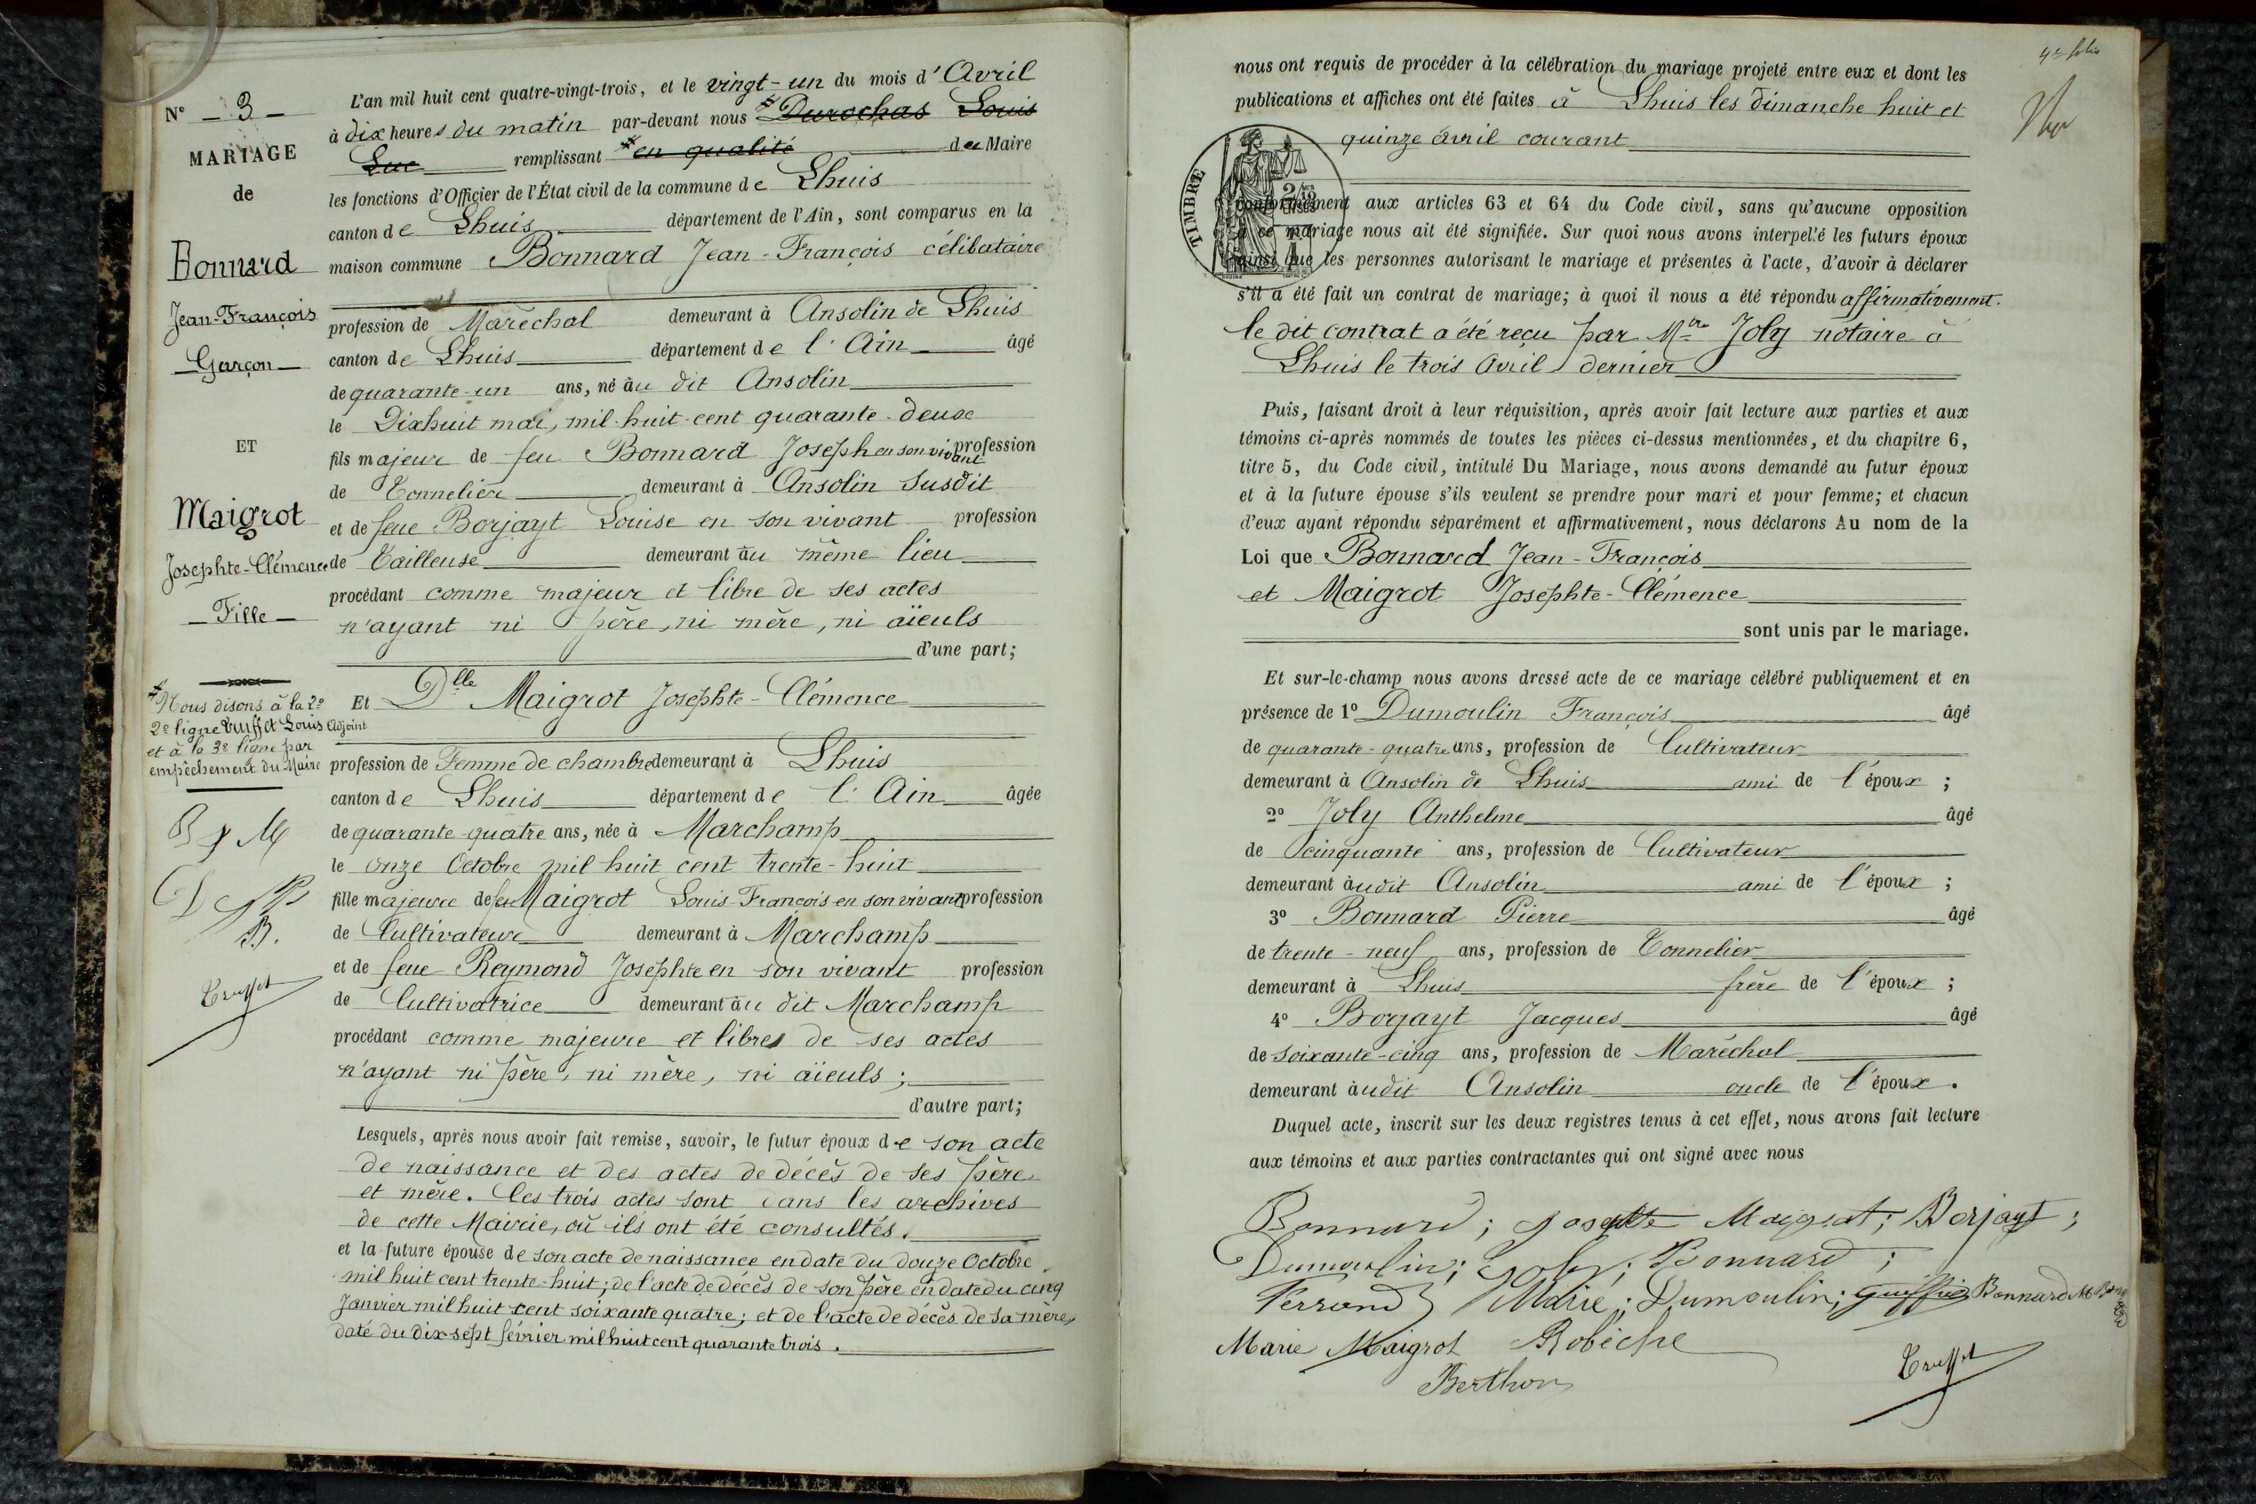 N° 3
MARIAGE
de
Bonnard
Jean-François
Garçon
ET
Maigrot
Josephte-Clémence
Fille
Nous disons à la 2e
2e ligne Truffet Louis Adjoint
et à la 3e ligne par
empêchement du Maire
B M
D
B.
Truffet
L'an mil huit cent quatre-vingt-trois, et le vingt-un du mois d'Avril
à dix heures du matin par-devant nous Durochas Louis
Luc remplissant en qualité de Maire
les fonctions d'Officier de l'État civil de la commune de Lhuis
canton de Lhuis département de l'Ain, sont comparus en la
maison commune Bonnard Jean-François célibataire
profession de Maréchal demeurant à Ansolin de Lhuis
canton de Lhuis département de l'Ain âgé
de quarante-un ans, né au dit Ansolin
le Dixhuit mai, mil huit cent quarante-deux
fils majeur de feu Bonnard Joseph en son vivant profession
de Tonnelier demeurant à Ansolin Susdit
et de feue Borjayt Louise en son vivant profession
de Tailleuse demeurant au même lieu
procédant comme majeur et libre de ses actes
n'ayant ni père, ni mère, ni aïeuls
d'une part;
Et Dlle Maigrot Josephte-Clémence
profession de Femme de chambre demeurant à Lhuis
canton de Lhuis département de l'Ain âgée
de quarante-quatre ans, née à Marchamp
le onze Octobre mil huit cent trente-huit
fille majeure de feu Maigrot Louis-François en son vivant profession
de Cultivateur demeurant à Marchamp
et de feue Reymond Josephte en son vivant profession
de Cultivatrice demeurant au dit Marchamp
procédant comme majeure et libre de ses actes
n'ayant ni père, ni mère, ni aïeuls;
d'autre part;
Lesquels, après nous avoir fait remise, savoir, le futur époux de son acte
de naissance et des actes de décès de ses père
et mère. Ces trois actes sont dans les archives
de cette Mairie, où ils ont été consultés.
et la future épouse de son acte de naissance en date du douze Octobre
mil huit cent trente-huit; de l'acte de décès de son père en date du cinq
Janvier mil huit cent soixante quatre; et de l'acte de décès de sa mère,
daté du dix-sept février mil huit cent quarante trois.
4e folio
nous ont requis de procéder à la célébration du mariage projeté entre eux et dont les
publications et affiches ont été faites à Lhuis les dimanche huit et
quinze avril courant
TIMBRE
conformément aux articles 63 et 64 du Code civil, sans qu'aucune opposition
à ce mariage nous ait été signifiée. Sur quoi nous avons interpellé les futurs époux
ainsi que les personnes autorisant le mariage et présentes à l'acte, d'avoir à déclarer
s'il a été fait un contrat de mariage; à quoi il nous a été répondu affirmativement.
le dit contrat a été reçu par Mtre Joly notaire à
Lhuis le trois avril dernier
Puis, faisant droit à leur réquisition, après avoir fait lecture aux parties et aux
témoins ci-après nommés de toutes les pièces ci-dessus mentionnées, et du chapitre 6,
titre 5, du Code civil, intitulé Du Mariage, nous avons demandé au futur époux
et à la future épouse s'ils veulent se prendre pour mari et pour femme; et chacun
d'eux ayant répondu séparément et affirmativement, nous déclarons Au nom de la
Loi que Bonnard Jean-François
et Maigrot Josephte-Clémence
sont unis par le mariage.
Et sur-le-champ nous avons dressé acte de ce mariage célébré publiquement et en
présence de 1° Dumoulin François âgé
de quarante-quatre ans, profession de Cultivateur
demeurant à Ansolin de Lhuis ami de l'époux;
2° Joly Anthelme âgé
de cinquante ans, profession de Cultivateur
demeurant audit Ansolin ami de l'époux;
3° Bonnard Pierre âgé
de trente-neuf ans, profession de Tonnelier
demeurant à Lhuis frère de l'époux;
4° Borjayt Jacques âgé
de soixante-cinq ans, profession de Maréchal
demeurant audit Ansolin oncle de l'époux.
Duquel acte, inscrit sur les deux registres tenus à cet effet, nous avons fait lecture
aux témoins et aux parties contractantes qui ont signé avec nous
Bonnard; Josephte Maigrot; Borjayt;
Dumoulin; Joly; Bonnard;
Ferrand Marie; Dumoulin; Bonnard M
Marie Maigrot Robiche
Berthon
Truffet